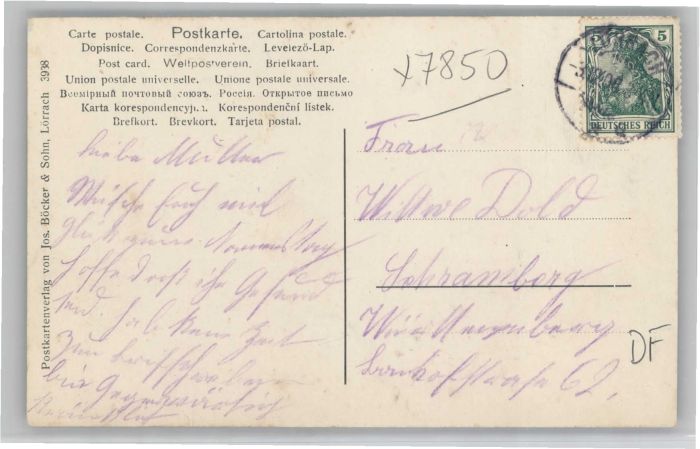 Carte postale. Postkarte. Cartolina postale.
Dopisnice. Correspondenzkarte. Levelező-Lap.
Post card. Weltpostverein. Briefkaart.
Union postale universelle. Unione postale universale.
Всемірный почтовый союзъ. Россія. Открытое письмо
Karta korespondencyjna. Korespondenční listek.
Brefkort. Brevkort. Tarjeta postal.
Postkartenverlag von Jos. Böcker & Sohn, Lörrach 3938
Liebe Mutter
Wünsche Euch viel
Glück zum Namenstag
hoffe daß ihr Gesund
seid. hab kein Zeit
zum
5 5
DEUTSCHES REICH
+7850
Frau
Wittwe Dold
Schramberg
Württemberg
Bahnhofstrasse 62.
DF